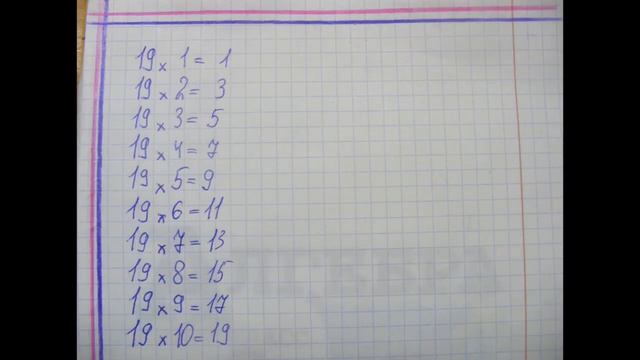 19 x 1 = 1
19 x 2 = 3
19 x 3 = 5
19 x 4 = 7
19 x 5 = 9
19 x 6 = 11
19 x 7 = 13
19 x 8 = 15
19 x 9 = 17
19 x 10 = 19